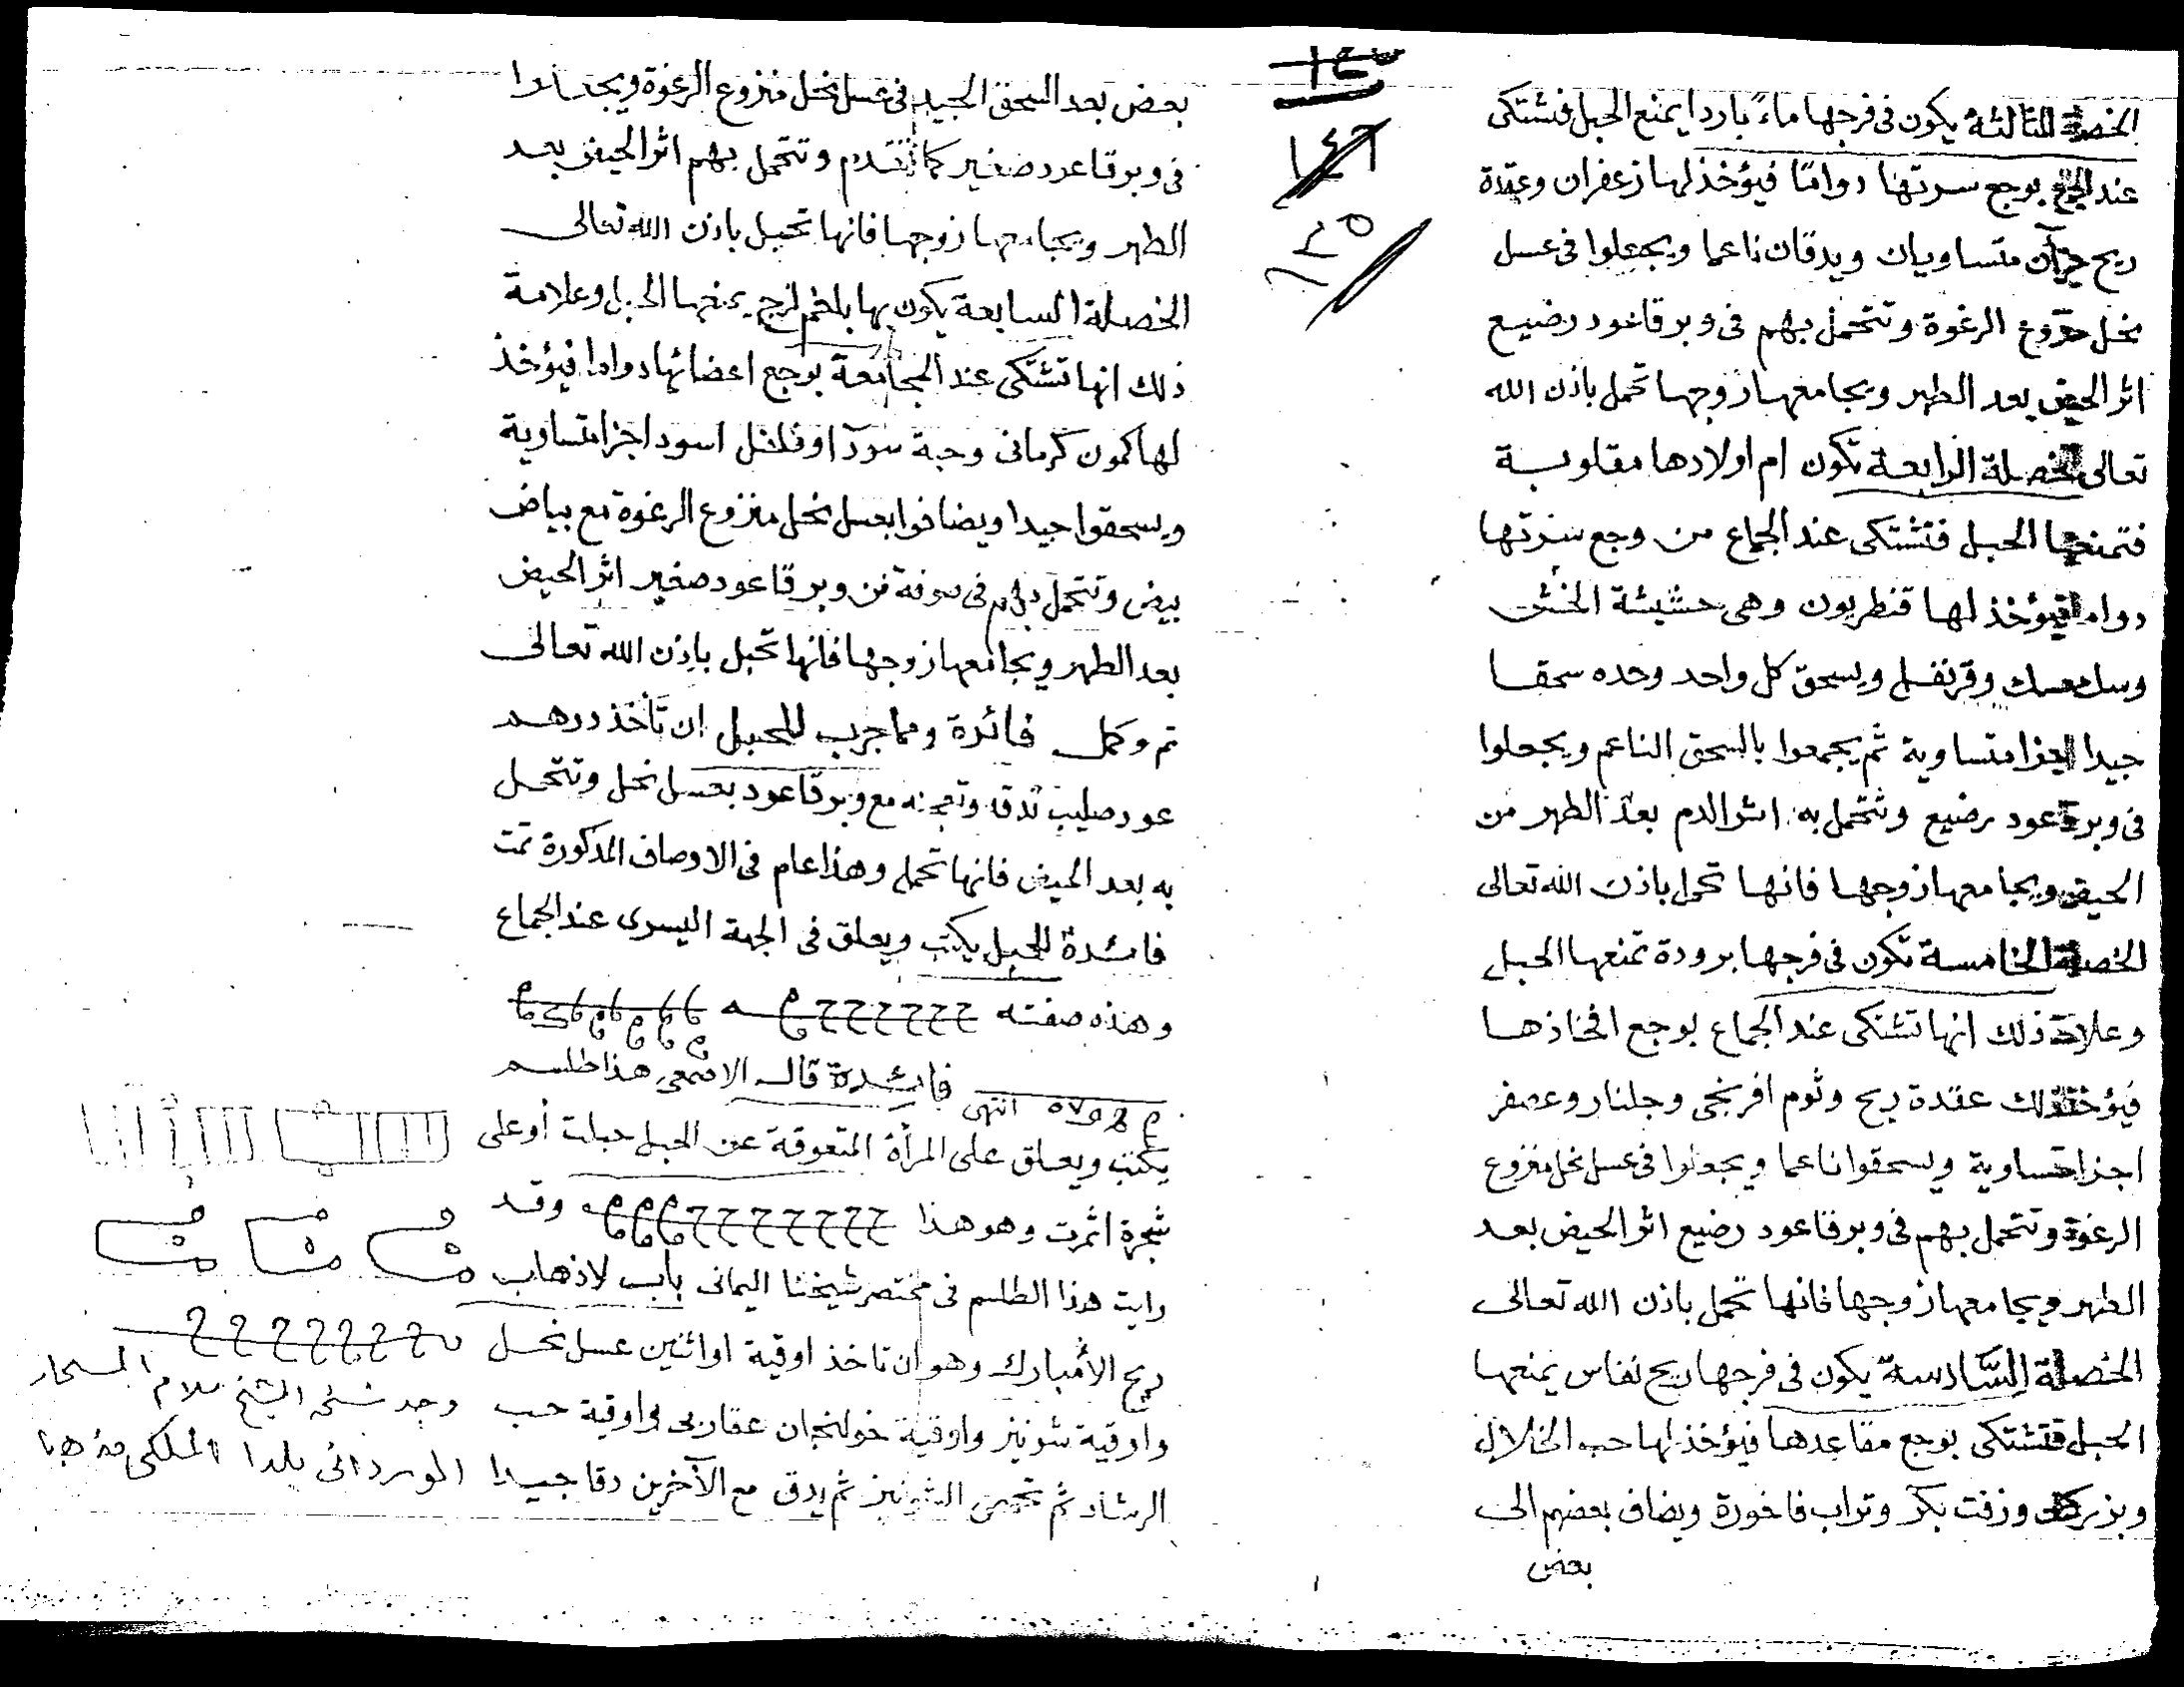 الخصلة الثالثة يكون فى فرجها ماءً باردا يمنع الحبل فتشتكى
عند الجماع بوجع سرتها دواما فيؤخذ لها زعفران وعقدة
ريح جزآن متساويان ويدقان ناعما ويجعلوا فى عسل
نحل منزوع الرغوة وتتحمل بهم فى وبر قاعود رضيع
اثر الحيض بعد الطهر ويجامعها زوجها تحمل باذن الله
تعالى الخصلة الرابعة تكون ام اولادها مقلوبة
فتمنعها الحبل فتشتكى عند الجماع من وجع سرتها
دواما فيؤخذ لها قنطريون وهى حشيشة الخنش
وسك مسك وقرنفل ويسحق كل واحد وحده سحقا
جيدا اجزا متساوية ثم يجمعوا بالسحق الناعم ويجعلوا
فى وبر قاعود رضيع وتتحمل به اثر الدم بعد الطهر من
الحيض ويجامعها زوجها فانها تحمل باذن الله تعالى
الخصلة الخامسة تكون فى فرجها برودة تمنعها الحبل
وعلامة ذلك انها تشتكى عند الجماع بوجع افخاذها
فيؤخذ لذلك عقدة ريح وثوم افرنجى وجلنار وعصفر
اجزا متساوية ويسحقوا ناعما ويجعلوا فى عسل نحل منزوع
الرغوة وتتحمل بهم فى وبر قاعود رضيع اثر الحيض بعد
الطهر ويجامعها زوجها فانها تحمل باذن الله تعالى
الخصلة السّادسة يكون فى فرجها ريح نفاس يمنعها
الحبل فتشتكى بوجع مقاعدها فيؤخذ لها حب الخلال
وبذر وزفت بكر وتراب فاخورة ويضاف بعضهم الى
بعض
١٤٦
بعض بعد السحق الجيد فى عسل نحل منزوع الرغوة ويجعلوا
فى وبر قاعود صغير كما تقدم وتتحمل بهم اثر الحيض بعد
الطهر ويجامعها زوجها فانها تحبل باذن الله تعالى
الخصلة السابعة يكون بها بلغم لزج يمنعها الحبل وعلامة
ذلك انها تشتكى عند المجامعة بوجع اعضائها دواما فيؤخذ
لها كمون كرمانى وحبة سودآ وفلفل اسود اجزا متساوية
ويسحقوا جيدا ويضافوا بعسل نحل منزوع الرغوة مع بياض
بيض وتتحمل بهم فى صوفة من وبر قاعود صغير اثر الحيض
بعد الطهر ويجامعها زوجها فانها تحبل باذن الله تعالى
تم وكمل فائدة ومما جرب للحبل ان تأخذ درهم
عود صليب تدقه وتعجنه مع وبر قاعود بعسل نحل وتتحمل
به بعد الحيض فانها تحمل وهذا عام فى الاوصاف المذكورة تمت
فائدة للحبل يكتب ويعلق فى الجهة اليسرى عند الجماع
وهذه صفته
انتهى فائدة قال الاصمعى هذا طلسم
يكتب ويعلق على المرأة المتعوقة عن الحبل حبلت أو على
شجرة اثمرت وهو هذا وقد
رايت هذا الطلسم فى مختصر شيخنا اليمانى باب لاذهاب
ريح الأمبارك وهو ان تاخذ اوقية او اثنين عسل نحل
واوقية شونيز واوقية خولنجان عقاربى واوقية حب
الرشاد ثم تحمص الشونيز ثم يدق مع الآخرين دقا جيدا
وجد الشيخ سلام
بلدا المالكى